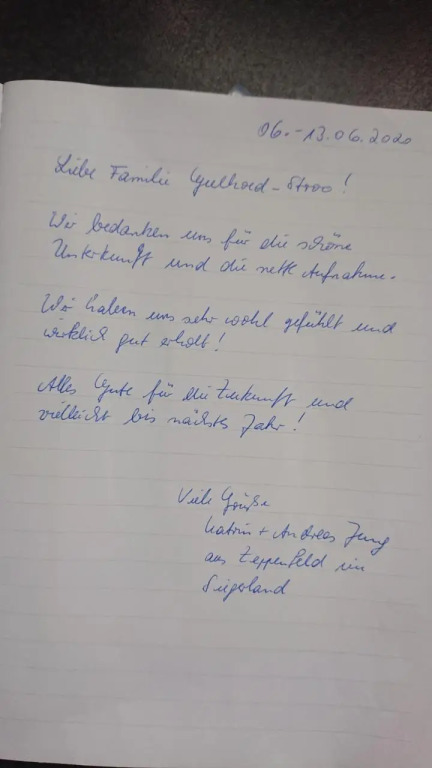 06.-13.06.2020
Liebe Familie Geelhoed-Stroo!
Wir bedanken uns für die schöne
Unterkunft und die nette Aufnahme.
Wir haben uns sehr wohl gefühlt und
wirklich gut erholt!
Alles Gute für die Zukunft und
vielleicht bis nächstes Jahr!
Viele Grüße
Katrin + Andreas Jung
aus Zeppenfeld im
Siegerland